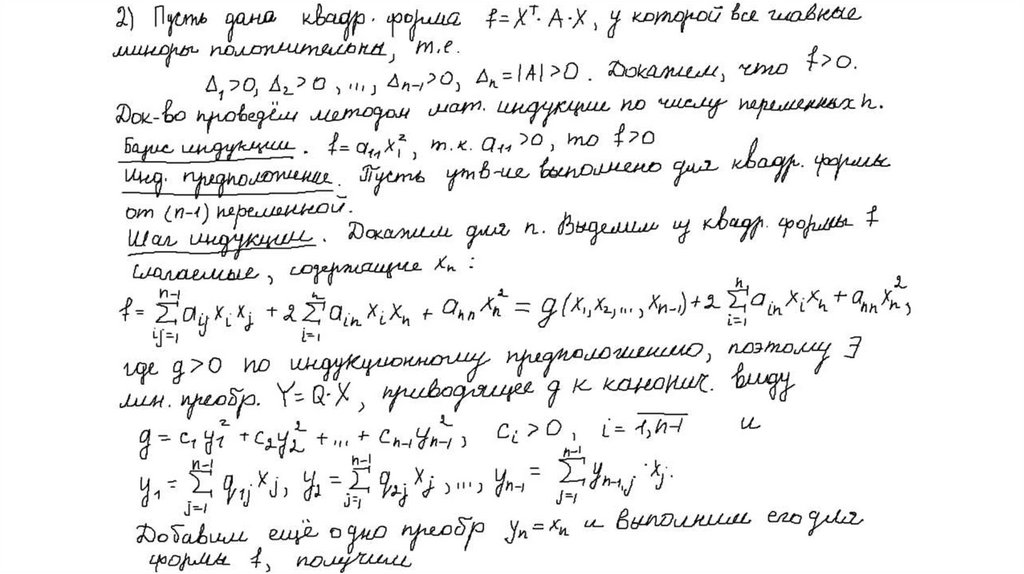 2) Пусть дана квадр. форма f = X^T · A · X, у которой все главные
миноры положительны, т.е.
Δ₁>0, Δ₂>0, ..., Δₙ₋₁>0, Δₙ=|A|>0. Докажем, что f>0.
Док-во проведём методом мат. индукции по числу переменных n.
Базис индукции. f = a₁₁x₁², т.к. a₁₁>0, то f>0
Инд. предположение. Пусть утв-ие выполнено для квадр. формы
от (n-1) переменной.
Шаг индукции. Докажем для n. Выделим из квадр. формы f
слагаемые, содержащие xₙ:
f = ∑_{i,j=1}^{n-1} a_{ij} x_i x_j + 2 ∑_{i=1}^{n} a_{in} x_i x_n + a_{nn} x_n² = g(x₁, x₂, ..., x_{n-1}) + 2 ∑_{i=1}^{n} a_{in} x_i x_n + a_{nn} x_n²,
где g>0 по индукционному предположению, поэтому ∃
лин. преобр. Y = Q · X, приводящее g к канонич. виду
g = c₁y₁² + c₂y₂² + ... + c_{n-1}y²_{n-1}, c_i > 0, i = \overline{1,n-1} и
y₁ = ∑_{j=1}^{n-1} q_{1j} x_j, y₂ = ∑_{j=1}^{n-1} q_{2j} x_j, ..., y_{n-1} = ∑_{j=1}^{n-1} y_{n-1,j} · x_j.
Добавим ещё одно преобр yₙ = xₙ и выполним его для
формы f, получим